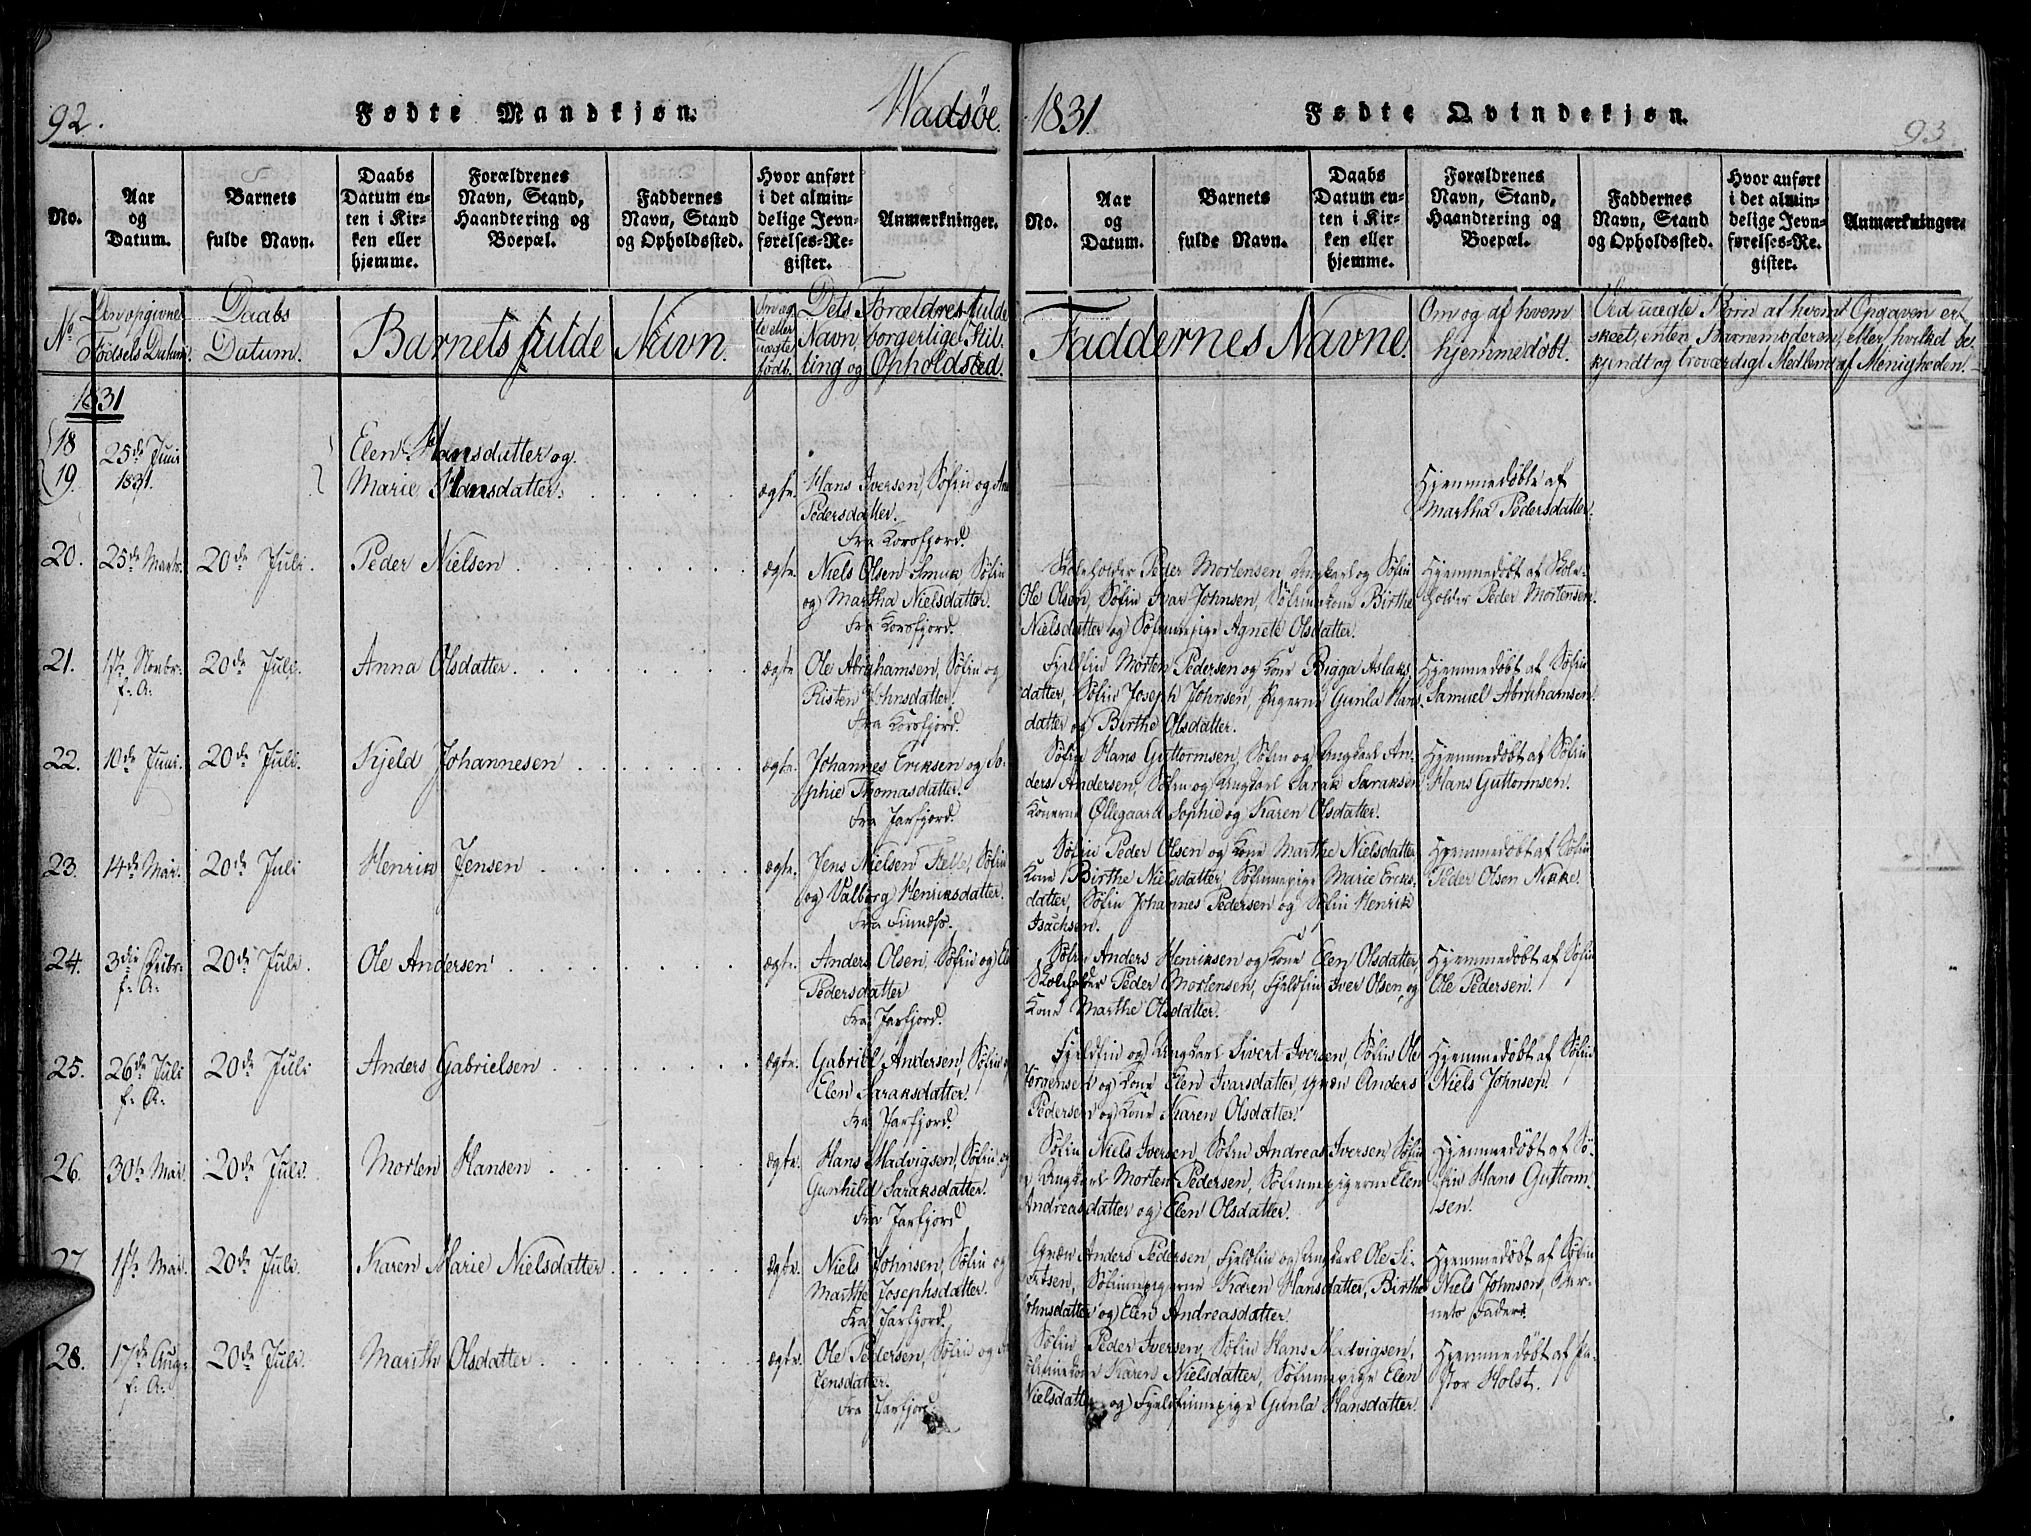 92.
Fødte Mandkjøn.
Wadsøe
No.
Aar
og
Datum.
Barnets
fulde Navn.
Daabs
Datum en-
ten i Kir-
ken eller
hjemme.
Forældrenes
Navn, Stand,
Haandtering og
Boepæl.
Faddernes
Navn, Stand
og Opholdssted.
Hvor anført
i det almin-
delige Jevn-
førelses-Re-
gister.
Anmærkninger.
No
Den opgivne
Fødsels Datum.
Daabs
Datum.
Barnets fulde Navn.
Om æg-
te eller
uægte
født.
Dets Forældres fulde
Navn, borgerlige Stil-
ling og Opholdsted.
1831
18
19.
25de Juni
1831.
Elen Hansdatter og
Marie Hansdatter.
ægte.
Hans Iversen, Søfin og
Pedersdatter.
Fra Korsfjord.
20.
25de Marts.
20de Juli.
Peder Nielsen
ægte.
Niels Olsen Smuk, Søfin
og Martha Nielsdatter.
Fra Korsfjord.
21.
1ste Novbr.
f. A.
20de Juli.
Anna Olsdatter.
ægte
Ole Abrahamsen, Søfin og
Risten Johnsdatter.
Fra Korsfjord.
22.
10de Juni.
20de Juli.
Kjeld Johannesen
ægte.
Johannes Eriksen og So-
phie Thomasdatter.
Fra Jarfjord.
23.
14de Mai.
20de Juli
Henrik Jensen
ægte.
Jens Nielsen Fælle, Søfin
og Valborg Henriksdatter.
24.
3die
f. A.
20de Juli.
Ole Andersen
ægte.
Anders Olsen, Søfin og
Pedersdatter
Fra Jarfjord.
25.
26de Juli
f. A.
20de Juli
Anders Gabrielsen
ægte.
Gabriel Andersen, Søfin
Elen Saraksdatter.
Fra Jarfjord.
26.
30te Mai.
20de Juli.
Morten Hansen
ægte.
Hans Madvigsen, Søfin,
Gunhild Saraksdatter.
Fra Jarfjord
27.
1ste Mai.
20de Juli.
Karen Marie Nielsdatter
ægte.
Niels Johnsen, Søfin og
Marthe Josephsdatter.
Fra Jarfjord.
28.
17de Aug.
f. A.
20de Juli.
Marith Olsdatter
ægte.
Ole Pedersen, Søfin og
Jensdatter.
Fra Jarfjord.
1831
Fødte Qvindekjøn.
93
No.
Aar
og
Datum.
Barnets
fulde Navn.
Daabs
Datum en-
ten i Kir-
ken eller
hjemme.
Forældrenes
Navn, Stand,
Haandtering og
Boepæl.
Faddernes
Navn, Stand
og Opholdssted.
Hvor anført
i det almin-
delige Jevn-
førelses-Re-
gister.
Anmærkninger.
Faddernes Navne.
Om og af hvem
hjemmedøbt.
Ved uægte Børn af hvem Opgaven er
skeet, enten Barnemoderen, eller hvilket be-
kjendt og troværdigt Medlem af Menigheden.
Hjemmedøbte af
Martha Pedersdatter.
Skoleholder Peder Mortensen, Ungkarl og Søfin
Ole Olsen, Søfin Ivar Johnsen, Søfinnekone Birthe
Nielsdatter og Søfinnepige Agnete Olsdatter.
Hjemmedøbt af Skole-
holder Peder Mortensen.
Fjeldfin Morten Pedersen og Kone Brigga Aslaks-
datter, Søfin Joseph Johnsen, Pigerne Gunla Hans-
datter og Birthe Olsdatter.
Hjemmedøbt af Søfin
Samuel Abrahamsen.
Søfin Hans Guttormsen, Søfin og Ungkarl An-
ders Andersen, Søfin og Ungkarl Sarak Saraksen
Konerne Øllegaard Sophie og Karen Olsdatter.
Hjemmedøbt af Søfin
Hans Guttormsen.
Søfin Peder Olsen og Kone Marthe Nielsdatter
Kone Birthe Nielsdatter, Søfinnepige Marie Eriks-
datter, Søfin Johannes Pedersen og Søfin Henrik
Isachsen.
Hjemmedøbt af Søfin
Peder Olsen Nikke.
Søfin Anders Henriksen og Kone Elen Olsdatter,
Skoleholder Peder Mortensen, Fjeldfin Iver Olsen og
Kone Marthe Olsdatter.
Hjemmedøbt af Søfin
Ole Pedersen.
Fjeldfin og Ungkarl Sivert Iversen, Søfin Ole
Jørgensen og Kone Elen Ivarsdatter, Qvæn Anders
Pedersen og Kone Karen Olsdatter.
Hjemmedøbt af Søfin
Niels Johnsen.
Søfin Niels Iversen, Søfin Andreas Iversen, Søfin
Ungkarl Morten Pedersen, Søfinnepigerne Elen
Andreasdatter og Elen Olsdatter.
Hjemmedøbt af Sø-
fin Hans Guttorm-
sen.
Qvæn Anders Pedersen, Fjeldfin og Ungkarl Ole Si-
vertsen, Søfinnepigerne Karen Hansdatter, Birthe
Johnsdatter og Elen Andreasdatter.
Hjemmedøbt af Søfin
Niels Johnsen, Bar-
nets Fader.
Søfin Peder Iversen, Søfin Hans Madvigsen,
Søfinnekone Karen Nielsdatter, Søfinnepige Elen
Nielsdatter og Fjeldfinnepige Gunla Hansdatter.
Hjemmedøbt af Pa-
stor Holst.